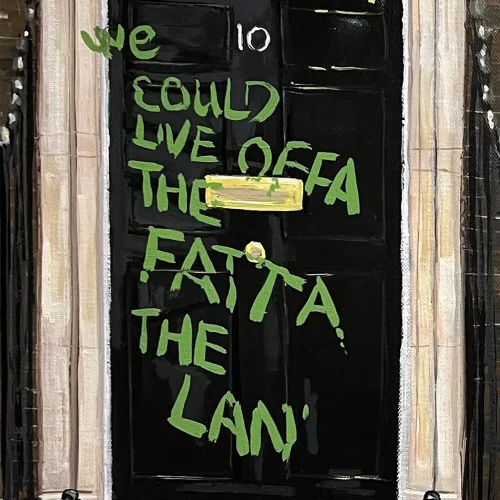 we
10
COULD
LIVE OFFA
THE
FATTA
THE
LAN'